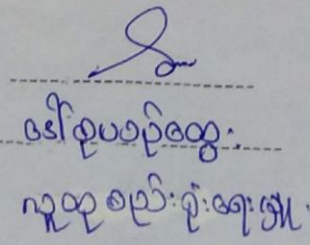 ဒေါ်စုပပဉ်ထွေး
လူထုစည်းရုံးရေးမှူး